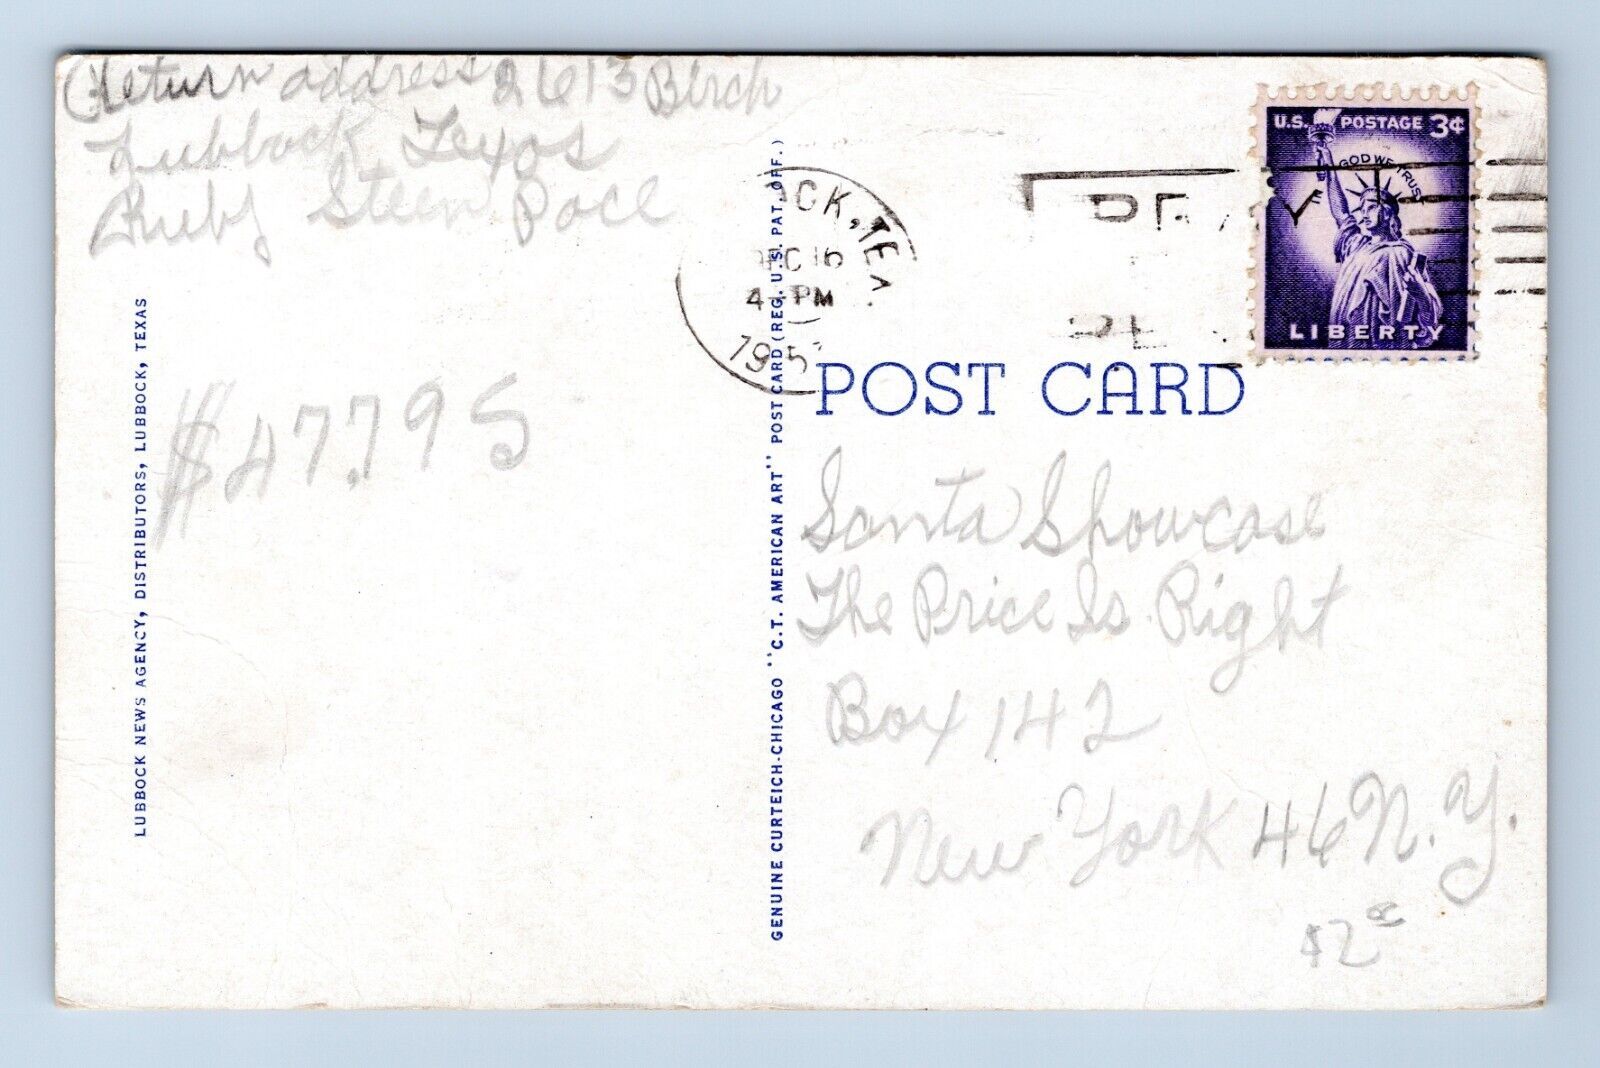 (Return address 2613 Birch
Lubbock, Texas
Ruby Steen Pace
$47.795
LUBBOCK NEWS AGENCY, DISTRIBUTORS, LUBBOCK, TEXAS
GENUINE CURTEICH-CHICAGO "C.T. AMERICAN ART" POST CARD (REG. U.S. PAT. OFF.)
OCK, TEX.
DEC 16
4-PM
195
U.S. POSTAGE 3¢
IN GOD WE TRUST
LIBERTY
POST CARD
Santa Showcase
The Price Is Right
Box 142
New York 46 N.Y.
$2